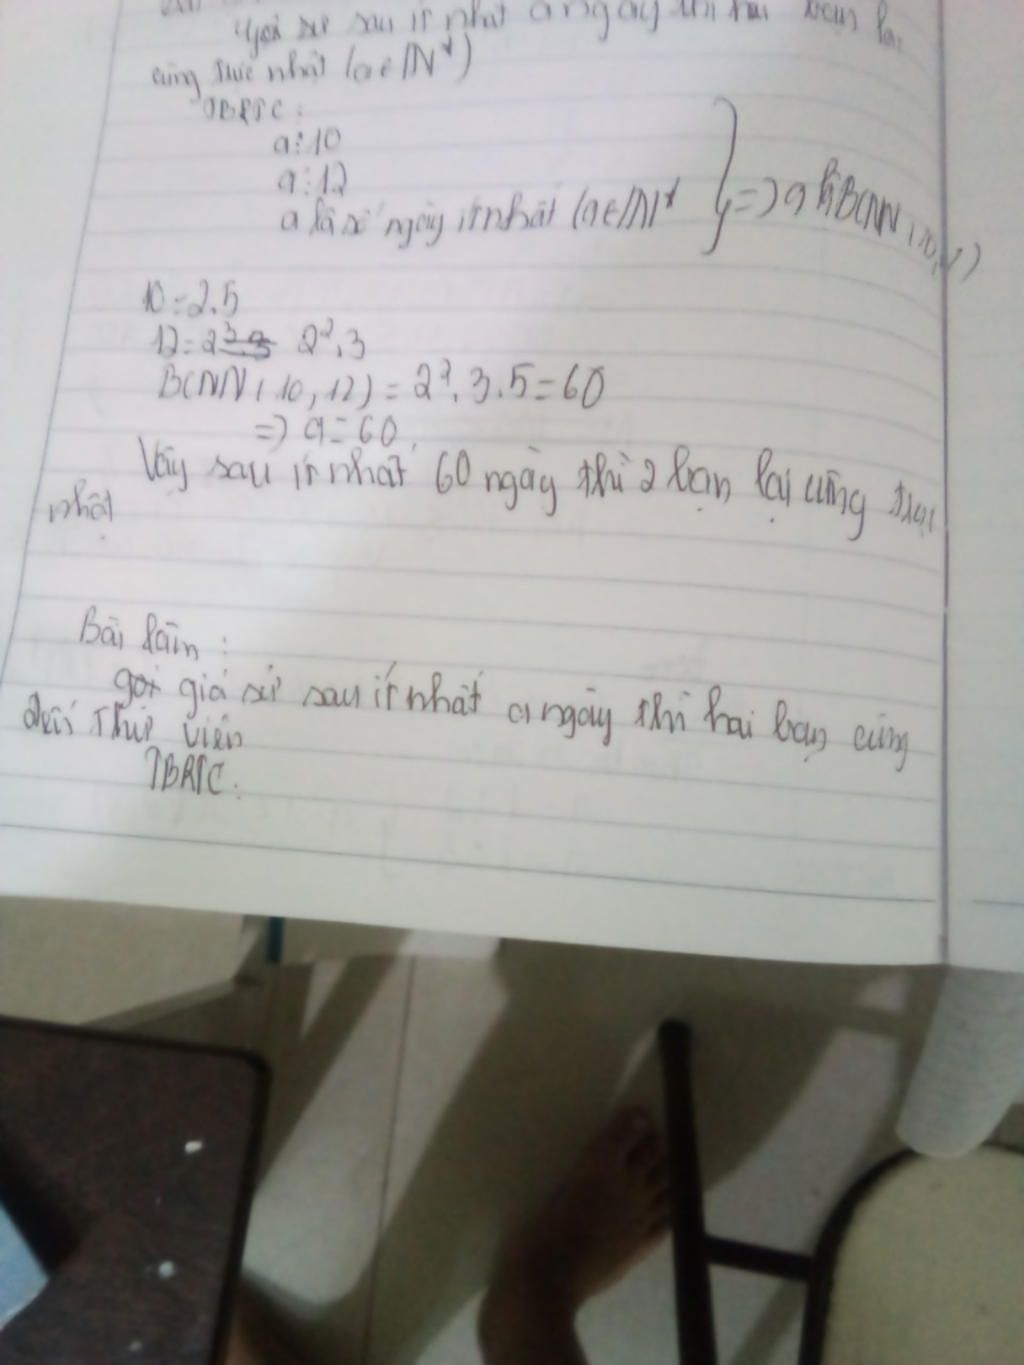 Gọi sử sau ít nhất a ngày thì hai bạn lại
cùng trực nhật (a ∈ IN*)
TBRTC:
a ⋮ 10
a ⋮ 12
a là số ngày ít nhất (a ∈ IN* } => a là BCNN (10,12)
10 = 2.5
12 = 2².3
BCNN (10, 12) = 2².3.5 = 60
=> a = 60.
Vậy sau ít nhất 60 ngày thì 2 bạn lại cùng trực
nhật
Bài làm:
gọi giả sử sau ít nhất a ngày thì hai bạn cùng
đến thư viện
TBRTC: